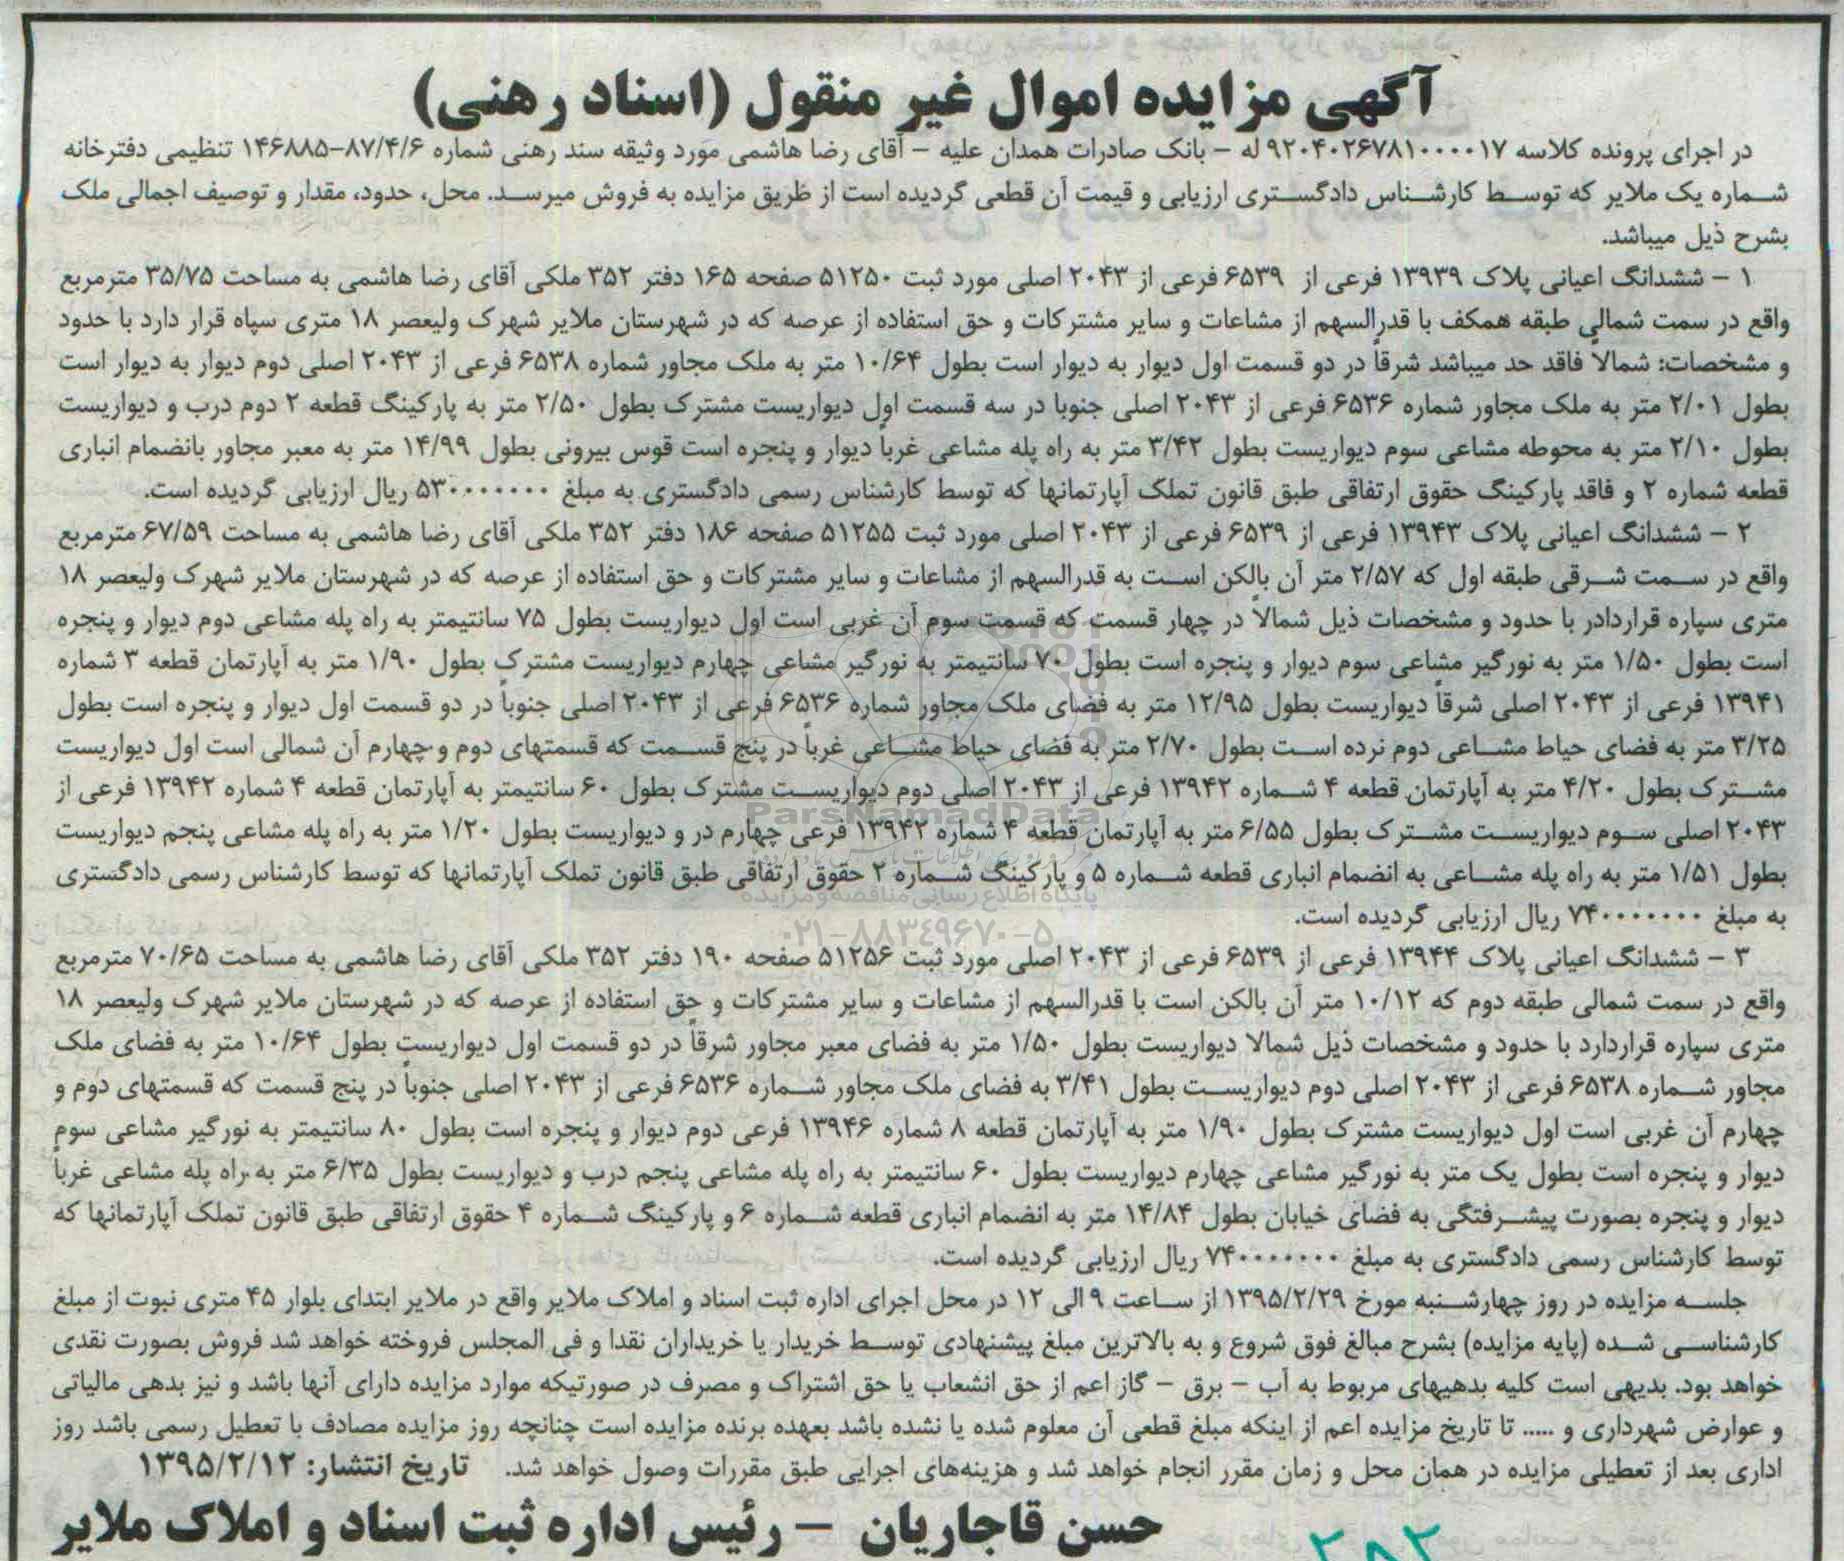 آگهی مزایده اموال غیر منقول (اسناد رهنی)
در اجرای پرونده کلاسه ۹۲۰۴۰۲۶۷۸۱۰۰۰۰۱۷ له – بانک صادرات همدان علیه – آقای رضا هاشمی مورد وثیقه سند رهنی شماره ۸۷/۴/۶–۱۴۶۸۸۵ تنظیمی دفترخانه
شماره یک ملایر که توسط کارشناس دادگستری ارزیابی و قیمت آن قطعی گردیده است از طریق مزایده به فروش میرسد. محل، حدود، مقدار و توصیف اجمالی ملک
بشرح ذیل میباشد.
۱ – ششدانگ اعیانی پلاک ۱۳۹۳۹ فرعی از ۶۵۳۹ فرعی از ۲۰۴۳ اصلی مورد ثبت ۵۱۲۵۰ صفحه ۱۶۵ دفتر ۳۵۲ ملکی آقای رضا هاشمی به مساحت ۳۵/۷۵ مترمربع
واقع در سمت شمالی طبقه همکف با قدرالسهم از مشاعات و سایر مشترکات و حق استفاده از عرصه که در شهرستان ملایر شهرک ولیعصر ۱۸ متری سپاه قرار دارد با حدود
و مشخصات: شمالاً فاقد حد میباشد شرقاً در دو قسمت اول دیوار به دیوار است بطول ۱۰/۶۴ متر به ملک مجاور شماره ۶۵۳۸ فرعی از ۲۰۴۳ اصلی دوم دیوار به دیوار است
بطول ۲/۰۱ متر به ملک مجاور شماره ۶۵۳۶ فرعی از ۲۰۴۳ اصلی جنوبا در سه قسمت اول دیواریست مشترک بطول ۲/۵۰ متر به پارکینگ قطعه ۲ دوم درب و دیواریست
بطول ۲/۱۰ متر به محوطه مشاعی سوم دیواریست بطول ۳/۴۲ متر به راه پله مشاعی غرباً دیوار و پنجره است قوس بیرونی بطول ۱۴/۹۹ متر به معبر مجاور بانضمام انباری
قطعه شماره ۲ و فاقد پارکینگ حقوق ارتفاقی طبق قانون تملک آپارتمانها که توسط کارشناس رسمی دادگستری به مبلغ ۵۳۰۰۰۰۰۰۰ ریال ارزیابی گردیده است.
۲ – ششدانگ اعیانی پلاک ۱۳۹۴۳ فرعی از ۶۵۳۹ فرعی از ۲۰۴۳ اصلی مورد ثبت ۵۱۲۵۵ صفحه ۱۸۶ دفتر ۳۵۲ ملکی آقای رضا هاشمی به مساحت ۶۷/۵۹ مترمربع
واقع در سمت شرقی طبقه اول که ۲/۵۷ متر آن بالکن است به قدرالسهم از مشاعات و سایر مشترکات و حق استفاده از عرصه که در شهرستان ملایر شهرک ولیعصر ۱۸
متری سپاره قراردادر با حدود و مشخصات ذیل شمالاً در چهار قسمت که قسمت سوم آن غربی است اول دیواریست بطول ۷۵ سانتیمتر به راه پله مشاعی دوم دیوار و پنجره
است بطول ۱/۵۰ متر به نورگیر مشاعی سوم دیوار و پنجره است بطول ۷۰ سانتیمتر به نورگیر مشاعی چهارم دیواریست مشترک بطول ۱/۹۰ متر به آپارتمان قطعه ۳ شماره
۱۳۹۴۱ فرعی از ۲۰۴۳ اصلی شرقاً دیواریست بطول ۱۲/۹۵ متر به فضای ملک مجاور شماره ۶۵۳۶ فرعی از ۲۰۴۳ اصلی جنوباً در دو قسمت اول دیوار و پنجره است بطول
۳/۲۵ متر به فضای حیاط مشاعی دوم نرده است بطول ۲/۷۰ متر به فضای حیاط مشاعی غرباً در پنج قسمت که قسمتهای دوم و چهارم آن شمالی است اول دیواریست
مشترک بطول ۴/۲۰ متر به آپارتمان قطعه ۴ شماره ۱۳۹۴۲ فرعی از ۲۰۴۳ اصلی دوم دیواریست مشترک بطول ۶۰ سانتیمتر به آپارتمان قطعه ۴ شماره ۱۳۹۴۲ فرعی از
۲۰۴۳ اصلی سوم دیواریست مشترک بطول ۶/۵۵ متر به آپارتمان قطعه ۴ شماره ۱۳۹۴۲ فرعی چهارم در و دیواریست بطول ۱/۲۰ متر به راه پله مشاعی پنجم دیواریست
بطول ۱/۵۱ متر به راه پله مشاعی به انضمام انباری قطعه شماره ۵ و پارکینگ شماره ۲ حقوق ارتفاقی طبق قانون تملک آپارتمانها که توسط کارشناس رسمی دادگستری
به مبلغ ۷۴۰۰۰۰۰۰۰ ریال ارزیابی گردیده است.
۳ – ششدانگ اعیانی پلاک ۱۳۹۴۴ فرعی از ۶۵۳۹ فرعی از ۲۰۴۳ اصلی مورد ثبت ۵۱۲۵۶ صفحه ۱۹۰ دفتر ۳۵۲ ملکی آقای رضا هاشمی به مساحت ۷۰/۶۵ مترمربع
واقع در سمت شمالی طبقه دوم که ۱۰/۱۲ متر آن بالکن است با قدرالسهم از مشاعات و سایر مشترکات و حق استفاده از عرصه که در شهرستان ملایر شهرک ولیعصر ۱۸
متری سپاره قراردارد با حدود و مشخصات ذیل شمالا دیواریست بطول ۱/۵۰ متر به فضای معبر مجاور شرقاً در دو قسمت اول دیواریست بطول ۱۰/۶۴ متر به فضای ملک
مجاور شماره ۶۵۳۸ فرعی از ۲۰۴۳ اصلی دوم دیواریست بطول ۳/۴۱ به فضای ملک مجاور شماره ۶۵۳۶ فرعی از ۲۰۴۳ اصلی جنوباً در پنج قسمت که قسمتهای دوم و
چهارم آن غربی است اول دیواریست مشترک بطول ۱/۹۰ متر به آپارتمان قطعه ۸ شماره ۱۳۹۴۶ فرعی دوم دیوار و پنجره است بطول ۸۰ سانتیمتر به نورگیر مشاعی سوم
دیوار و پنجره است بطول یک متر به نورگیر مشاعی چهارم دیواریست بطول ۶۰ سانتیمتر به راه پله مشاعی پنجم درب و دیواریست بطول ۶/۳۵ متر به راه پله مشاعی غرباً
دیوار و پنجره بصورت پیشرفتگی به فضای خیابان بطول ۱۴/۸۴ متر به انضمام انباری قطعه شماره ۶ و پارکینگ شماره ۴ حقوق ارتفاقی طبق قانون تملک آپارتمانها که
توسط کارشناس رسمی دادگستری به مبلغ ۷۴۰۰۰۰۰۰۰ ریال ارزیابی گردیده است.
جلسه مزایده در روز چهارشنبه مورخ ۱۳۹۵/۲/۲۹ از ساعت ۹ الی ۱۲ در محل اجرای اداره ثبت اسناد و املاک ملایر واقع در ملایر ابتدای بلوار ۴۵ متری نبوت از مبلغ
کارشناسی شده (پایه مزایده) بشرح مبالغ فوق شروع و به بالاترین مبلغ پیشنهادی توسط خریدار یا خریداران نقدا و فی المجلس فروخته خواهد شد فروش بصورت نقدی
خواهد بود. بدیهی است کلیه بدهیهای مربوط به آب – برق – گاز اعم از حق انشعاب یا حق اشتراک و مصرف در صورتیکه موارد مزایده دارای آنها باشد و نیز بدهی مالیاتی
و عوارض شهرداری و ..... تا تاریخ مزایده اعم از اینکه مبلغ قطعی آن معلوم شده یا نشده باشد بعهده برنده مزایده است چنانچه روز مزایده مصادف با تعطیل رسمی باشد روز
اداری بعد از تعطیلی مزایده در همان محل و زمان مقرر انجام خواهد شد و هزینه‌های اجرایی طبق مقررات وصول خواهد شد. تاریخ انتشار: ۱۳۹۵/۲/۱۲
حسن قاجاریان – رئیس اداره ثبت اسناد و املاک ملایر
ParsNamadData
پایگاه اطلاع رسانی مناقصه و مزایده
۰۲۱–۸۸۳۴۹۶۷۰–۵